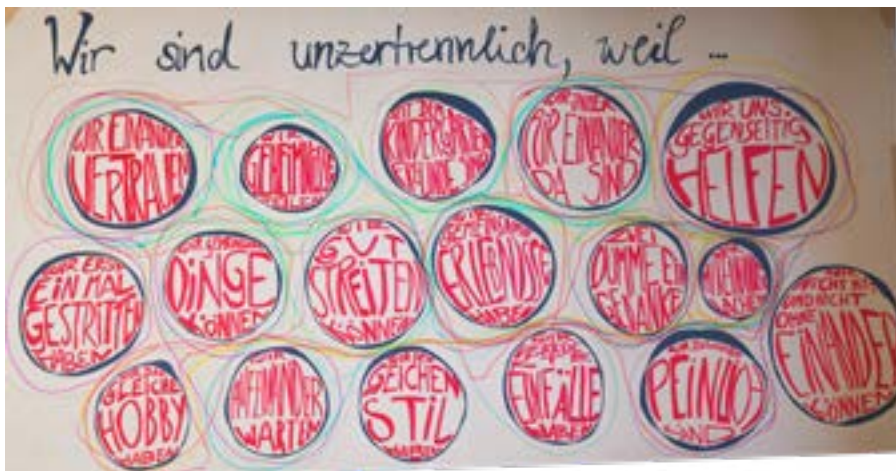 Wir sind unzertrennlich, weil ...
WIR EINANDER
VERTRAUEN
GEHEIMNISSE
SEIT DEM
KINDERGARTEN
FREUNDE SIND
FÜR EINANDER
DA SIND
WIR UNS
GEGENSEITIG
HELFEN
ERST
EINMAL
GESTRITTEN
HABEN
DINGE
KÖNNEN
GUT
STREITEN
KÖNNEN
GEMEINSAME
ERLEBNISSE
HABEN
ZWEI
DUMME EIN
GEDANKE
NICHT MIT
UND NICHT
OHNE
EINANDER
KÖNNEN
GLEICHE
HOBBY
HABEN
AUFEINANDER
WARTEN
GLEICHEN
STIL
EINFÄLLE
HABEN
PEINLICH
SIND